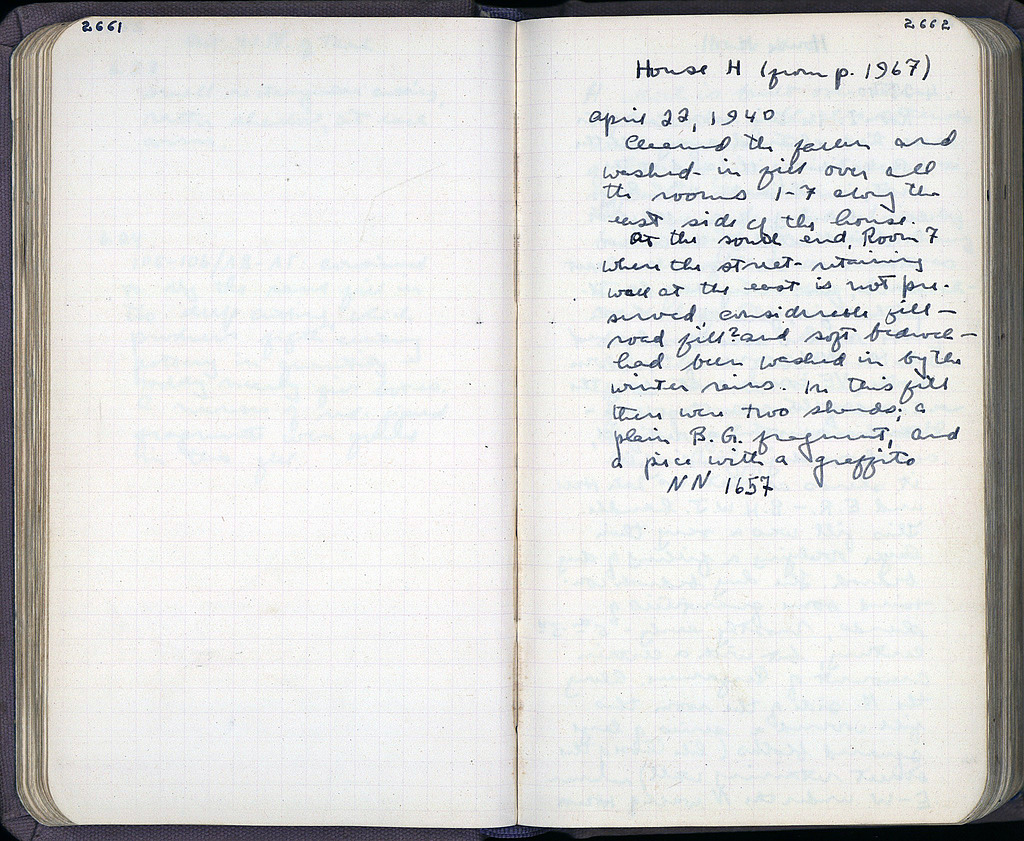 2661
2662
House H (from p. 1967)
April 22, 1940
Cleaned the fallen and
washed-in fill over all
the rooms 1-7 along the
east side of the house.
At the south end, Room 7
where the street-retaining
wall at the east is not pre-
served, considerable fill -
road fill? and soft bedrock -
had been washed in by the
winter rains. In this fill
there were two sherds; a
plain B.G. fragment, and
a piece with a graffito
NN 1657